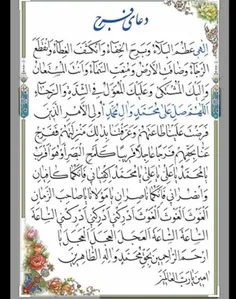 دعای فرج
الهی عظم البلاء و برح الخفاء و انکشف الغطاء و انقطع
الرجاء و ضاقت الارض و منعت السماء و انت المستعان
و الیک المشتکی و علیک المعول فی الشدة و الرخاء
اللهم صل علی محمد و آل محمد اولی الامر الذین
فرضت علینا طاعتهم و عرفتنا بذلک منزلتهم ففرج
عنا بحقهم فرجا عاجلا قریبا کلمح البصر او هو اقرب
یا محمد یا علی یا علی یا محمد اکفیانی فانکما کافیان
و انصرانی فانکما ناصران یا مولانا یا صاحب الزمان
الغوث الغوث الغوث ادرکنی ادرکنی ادرکنی الساعة
الساعة الساعة العجل العجل العجل یا
ارحم الراحمین بحق محمد و آله الطاهرین
امین یا رب العالمین